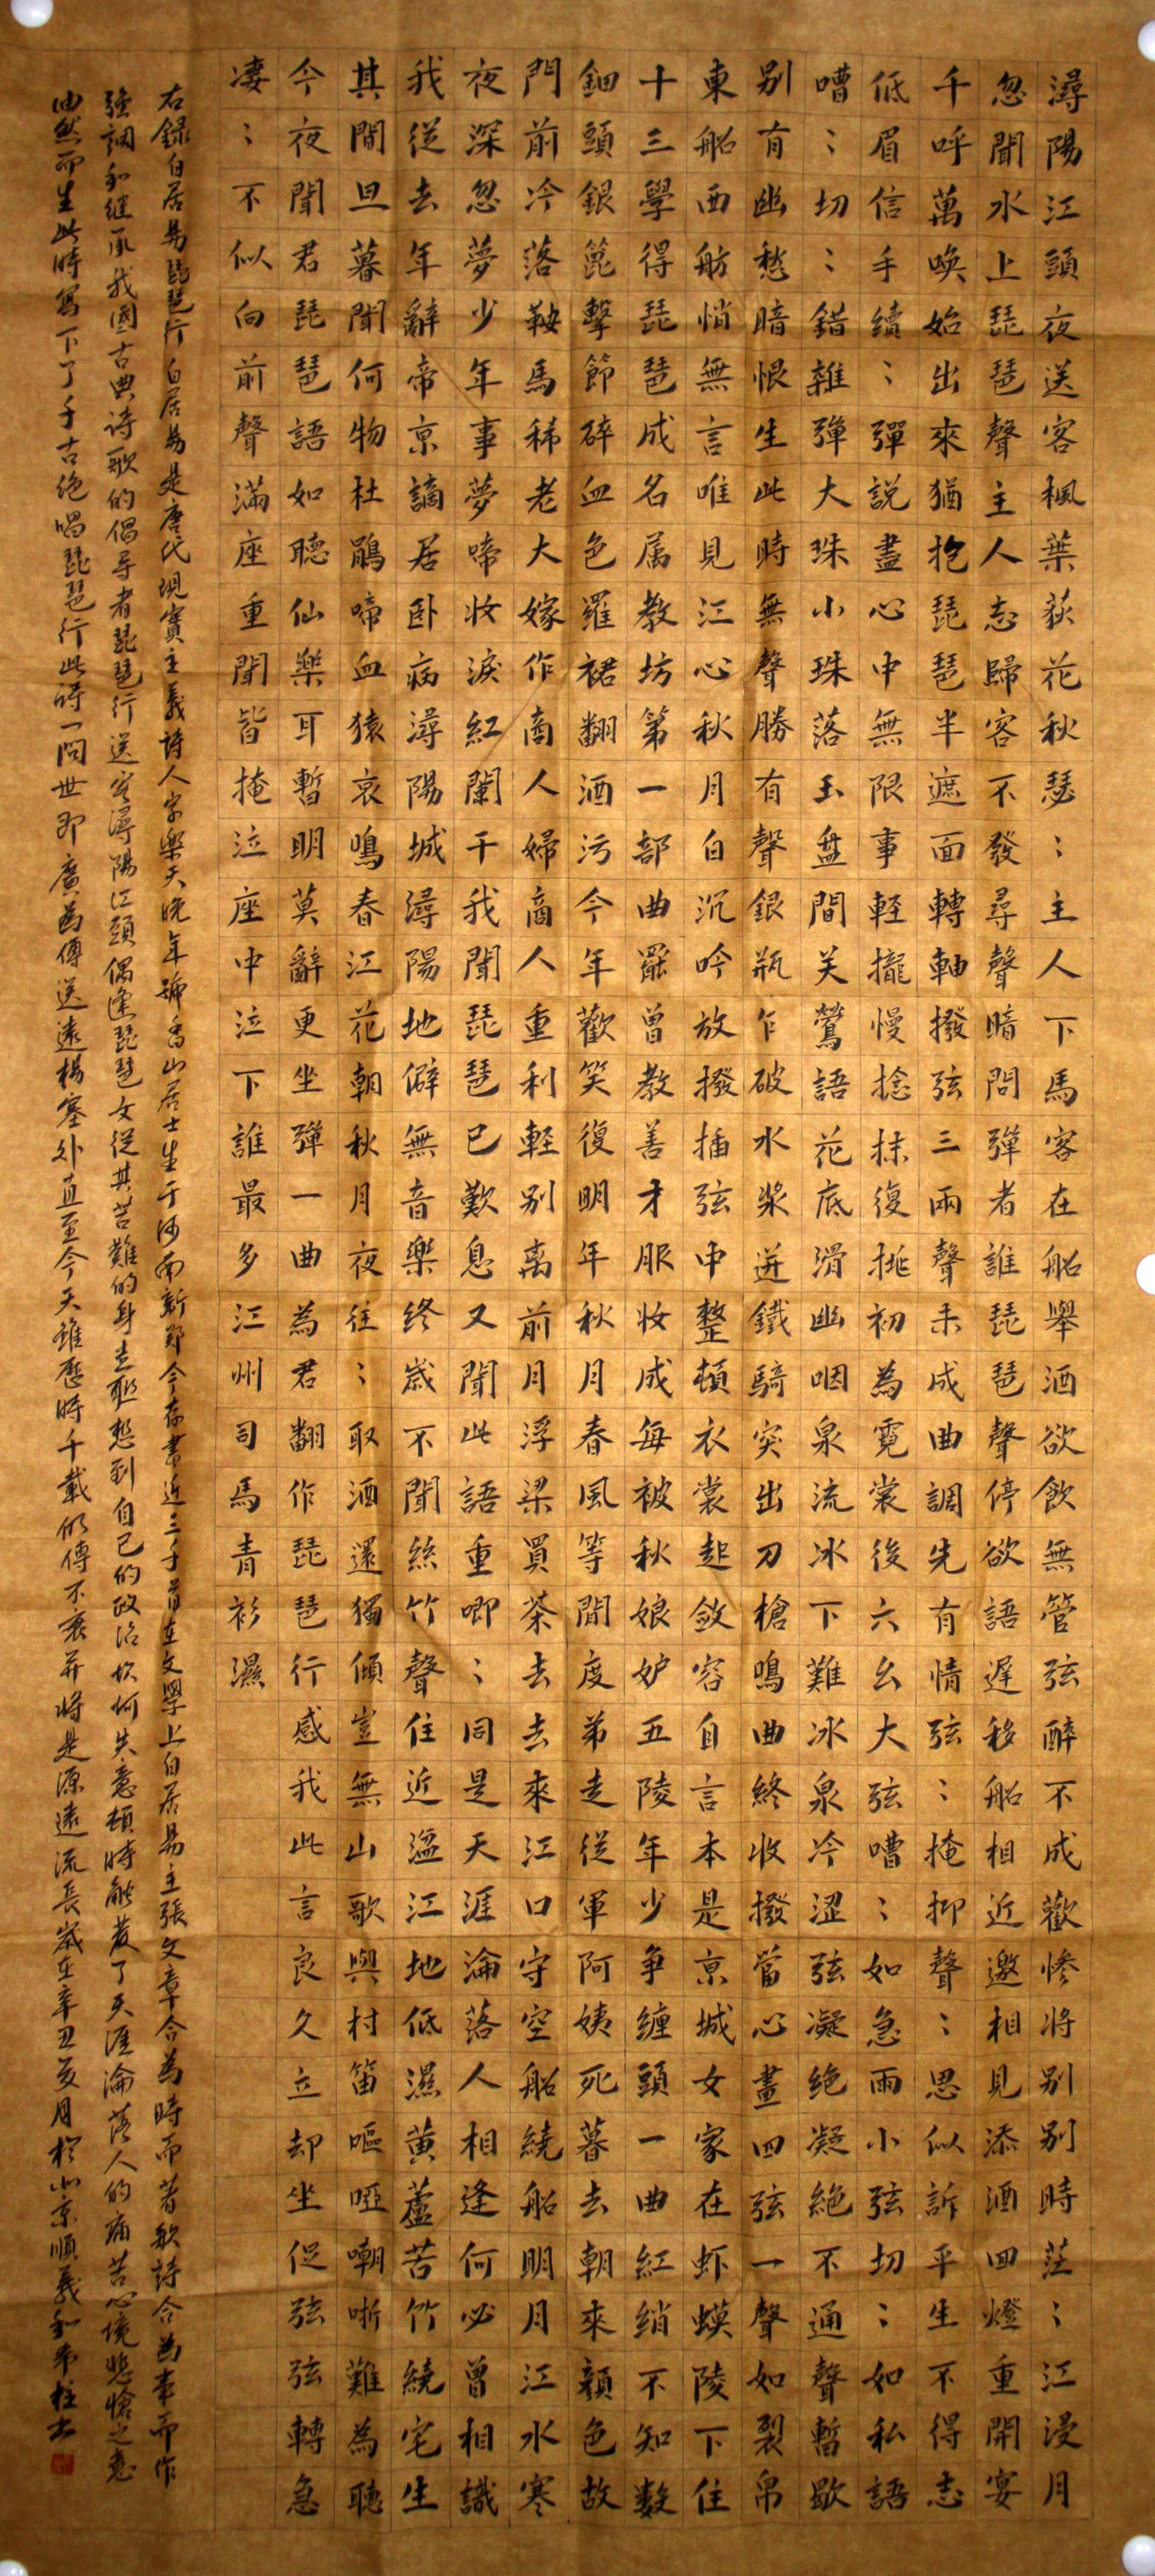 潯陽江頭夜送客楓葉荻花秋瑟〻主人下馬客在船舉酒欲飲無管弦醉不成歡慘將别别時茫〻江浸月
忽聞水上琵琶聲主人忘歸客不發尋聲暗問彈者誰琵琶聲停欲語遲移船相近邀相見添酒回燈重開宴
千呼萬喚始出來猶抱琵琶半遮面轉軸撥弦三兩聲未成曲調先有情弦〻掩抑聲〻思似訴平生不得志
低眉信手續〻彈説盡心中無限事輕攏慢捻抹復挑初為霓裳後六幺大弦嘈〻如急雨小弦切〻如私語
嘈〻切〻錯雜彈大珠小珠落玉盤間关鶯語花底滑幽咽泉流冰下難冰泉冷澀弦凝絶凝絶不通聲暫歇
别有幽愁暗恨生此時無聲勝有聲銀瓶乍破水漿迸鐵騎突出刀槍鳴曲終收撥當心畫四弦一聲如裂帛
東船西舫悄無言唯見江心秋月白沉吟放撥插弦中整頓衣裳起斂容自言本是京城女家在虾蟆陵下住
十三學得琵琶成名属教坊第一部曲罷曾教善才服妝成每被秋娘妒五陵年少争纏頭一曲紅綃不知数
鈿頭銀篦擊節碎血色羅裙翻酒污今年歡笑復明年秋月春風等間度弟走從軍阿姨死暮去朝來顏色故
門前冷落鞍馬稀老大嫁作商人婦商人重利輕别离前月浮梁買茶去去來江口守空船繞船明月江水寒
夜深忽夢少年事夢啼妝淚紅闌干我聞琵琶已歎息又聞此語重唧〻同是天涯淪落人相逢何必曾相識
我從去年辭帝京謫居卧病潯陽城潯陽地僻無音樂終歲不聞絲竹聲住近湓江地低濕黄蘆苦竹繞宅生
其間旦暮聞何物杜鵑啼血猿哀鳴春江花朝秋月夜往〻取酒還獨傾豈無山歌與村笛嘔啞嘲哳難為聽
今夜聞君琵琶語如聽仙樂耳暫明莫辭更坐彈一曲為君翻作琵琶行感我此言良久立却坐促弦弦轉急
凄〻不似向前聲滿座重聞皆掩泣座中泣下誰最多江州司馬青衫濕
右録白居易琵琶行白居易是唐代現實主義詩人字樂天晚年號香山居士生于河南新郑今存書近三千首在文學上白居易主張文章合為時而著歌詩合為事而作
強調和继承我國古典诗歌的倡导者琵琶行送客潯陽江頭偶逢琵琶女從其苦難的身世联想到自己的政治坎坷失意頓時触发了天涯淪落人的痛苦心境悲愴之意
由然而生此時寫下了千古绝唱琵琶行此诗一问世即廣為傳送遠揚塞外直至今天雖歷時千載仍傳不衰并將是源遠流長歲在辛丑夏月於北京順義和